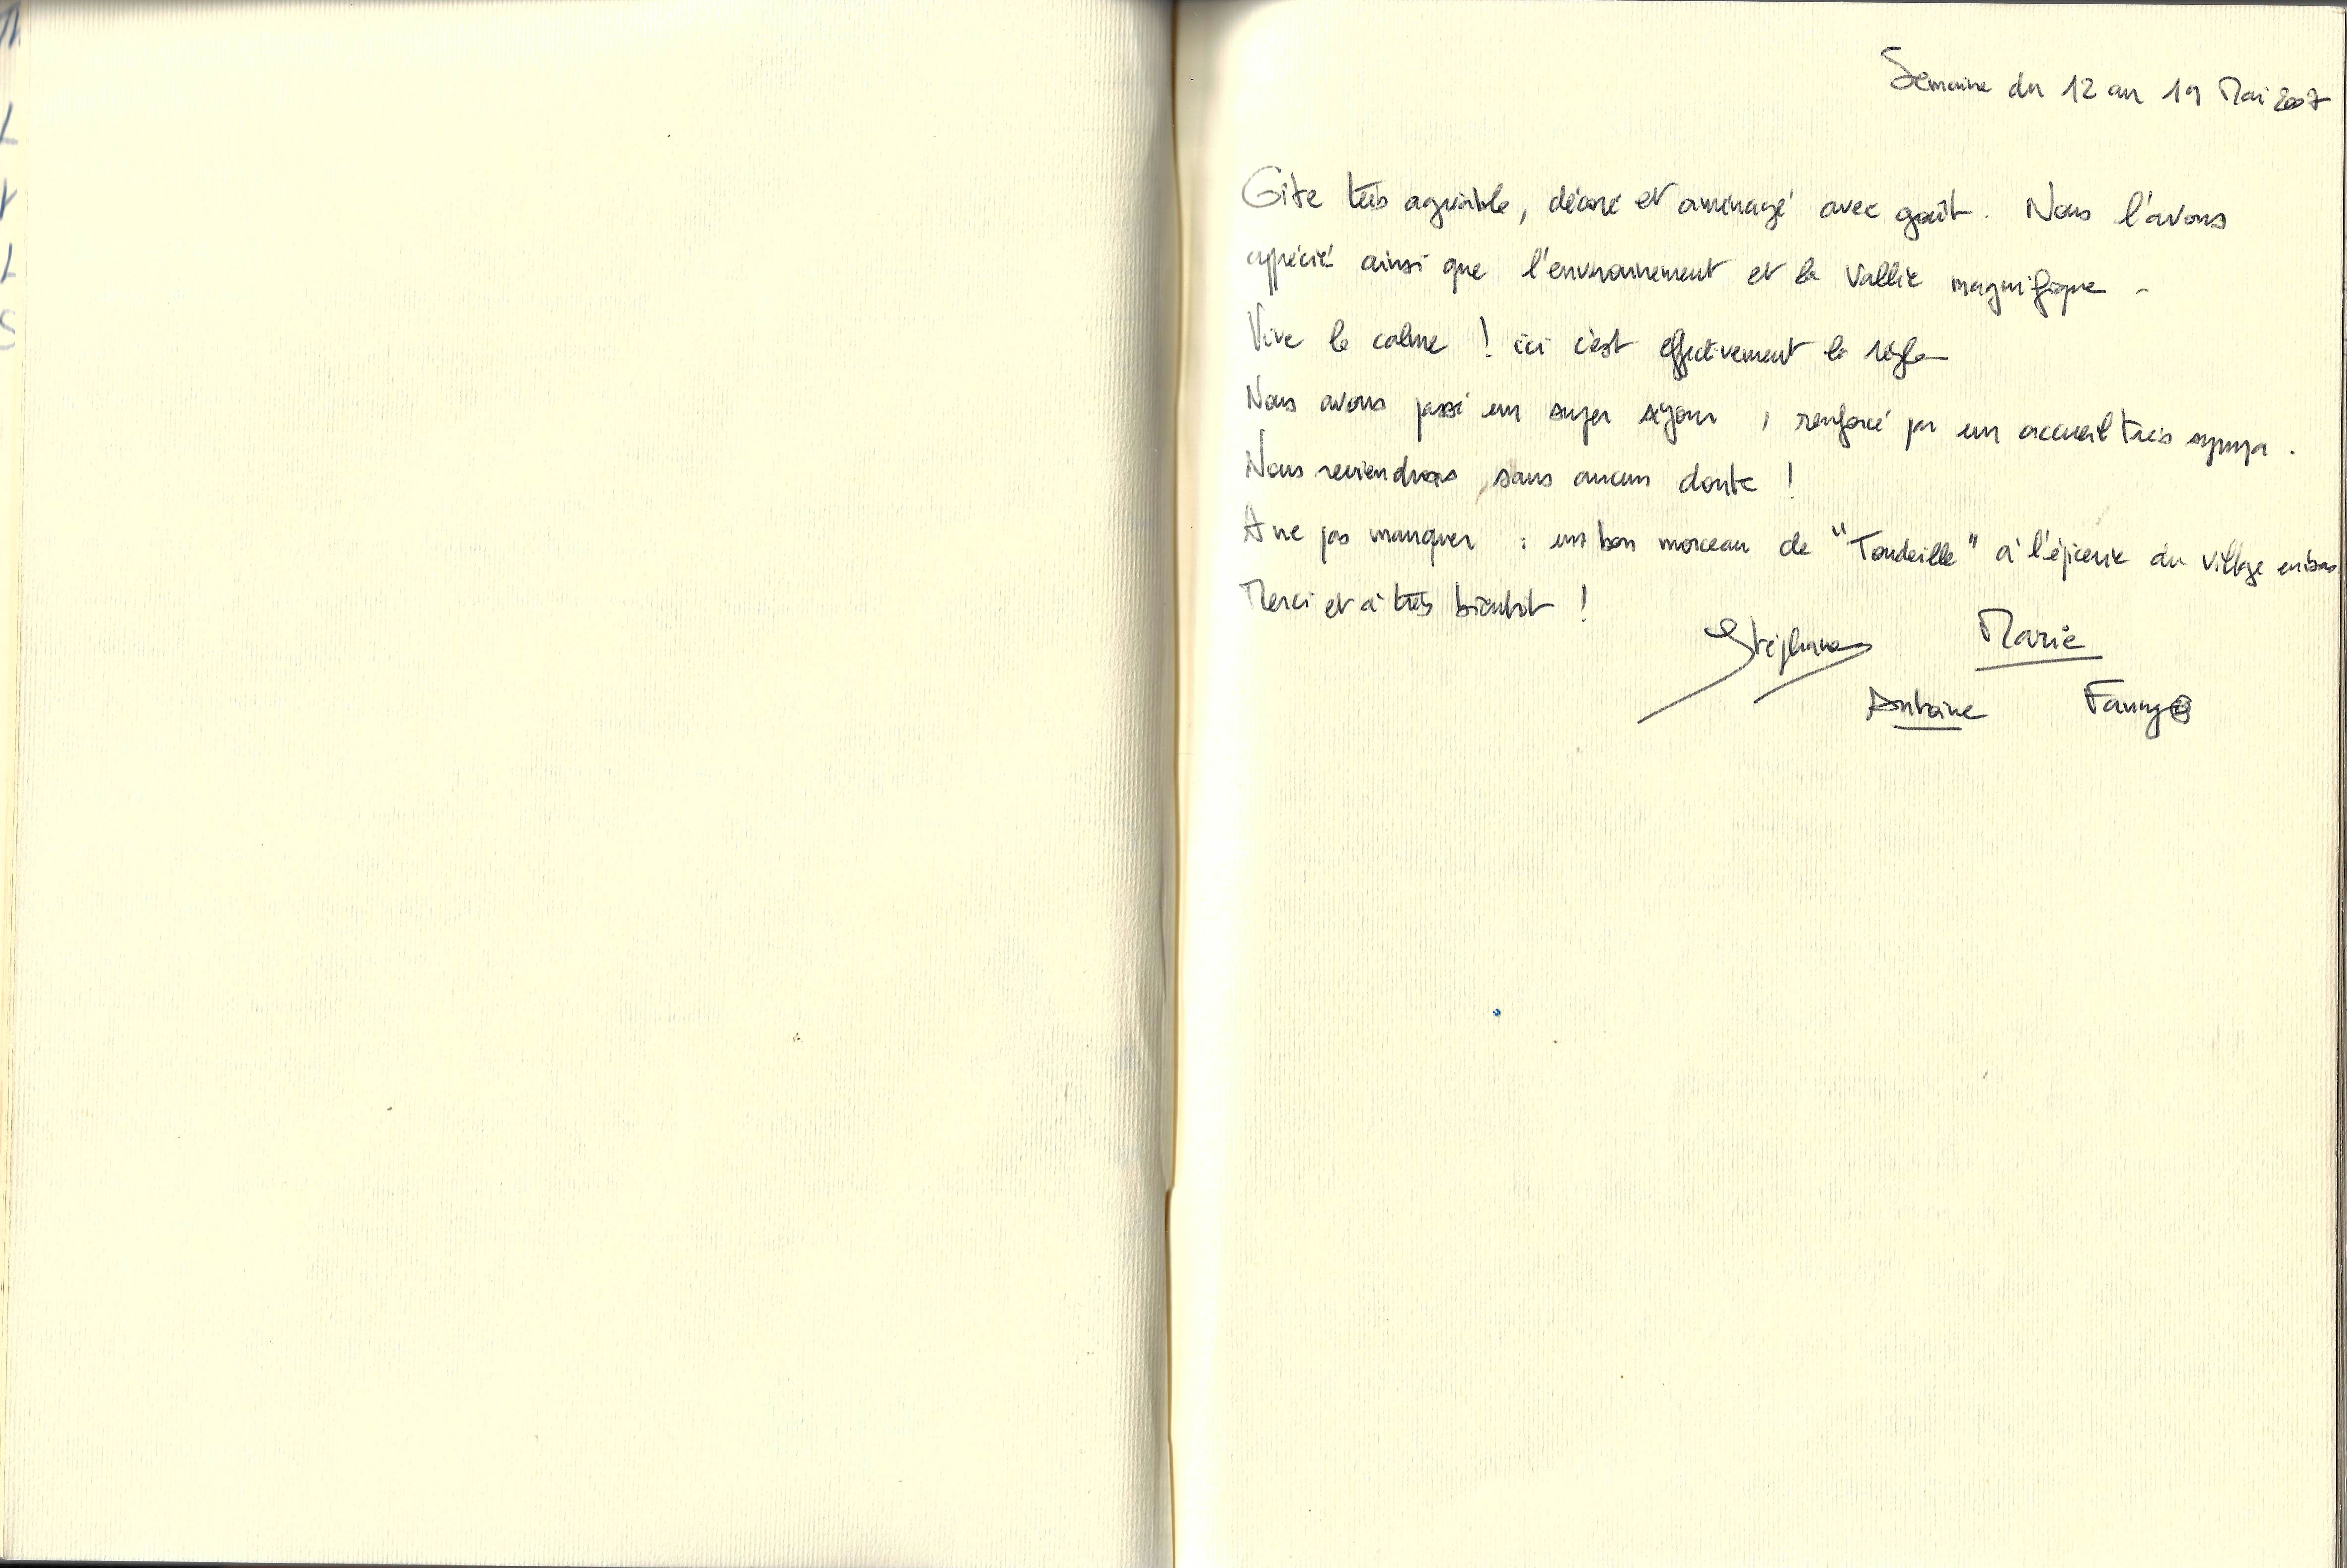 Semaine du 12 au 19 Mai 2007
Gîte très agréable, décoré et aménagé avec goût. Nous l'avons
apprécié ainsi que l'environnement et la Vallée magnifique -
Vive le calme ! ici c'est effectivement la règle
Nous avons passé un super séjour, renforcé par un accueil très sympa.
Nous reviendrons, sans aucun doute !
A ne pas manquer : un bon morceau de "Tondeille" à l'épicerie du village en bas
Merci et à très bientôt !
Stéphane Marie
Antoine Fanny